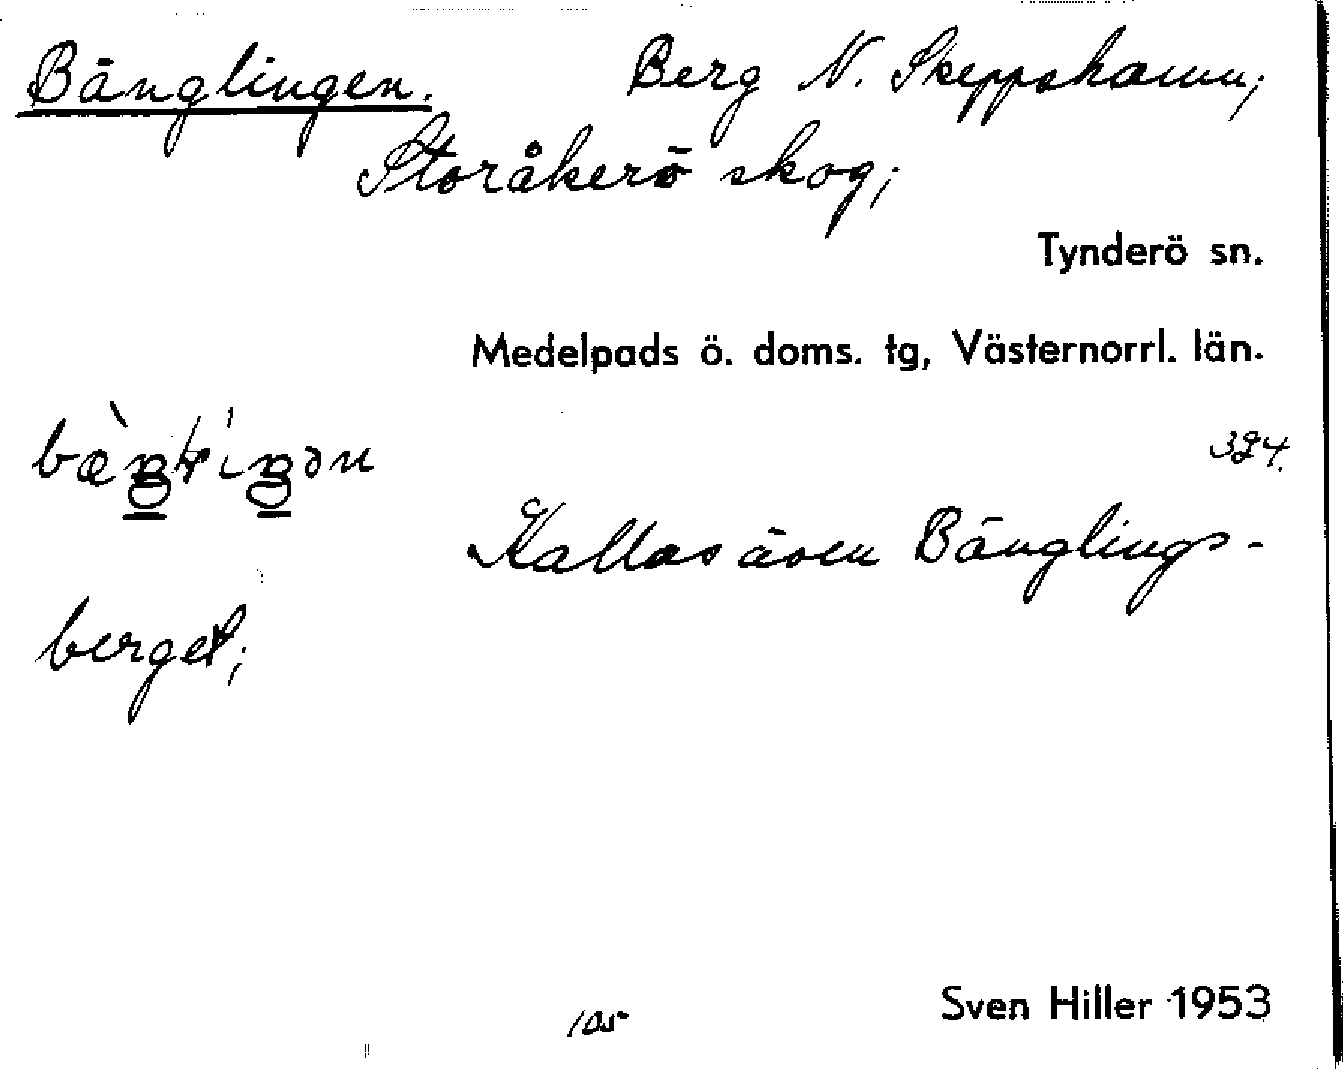 Bänglingen. Berg N. Skeppshamn;
Storåkerö skog;
Tynderö sn.
Medelpads ö. doms. tg, Västernorrl. län.
324.
Kallas även Bänglings-
berget;
105
Sven Hiller 1953